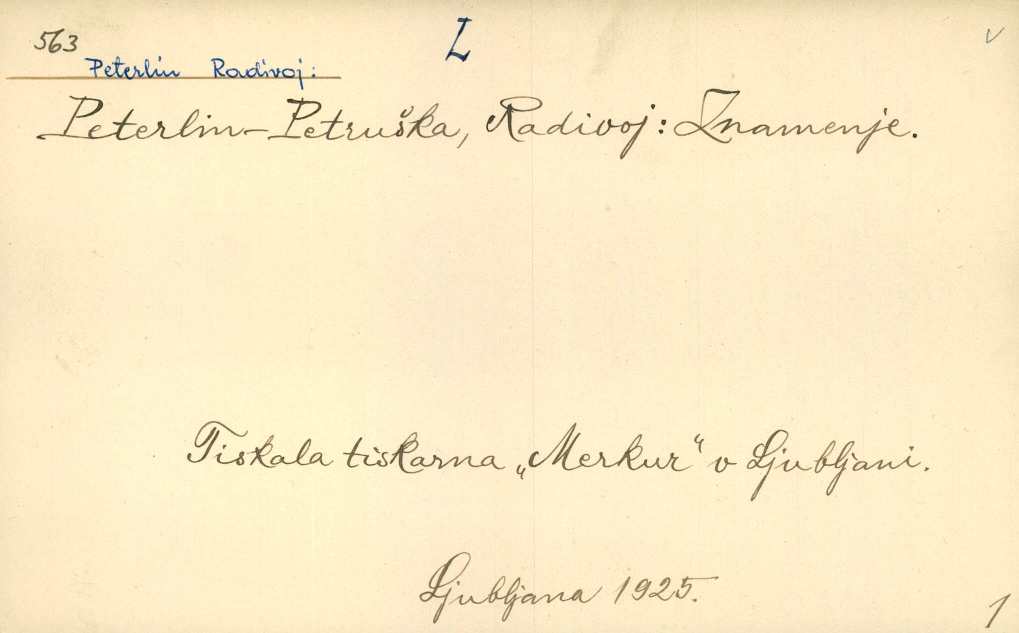 563
L
v
Peterlin Radivoj:
Peterlin-Petruška, Radivoj: Znamenje.
Tiskala tiskarna „Merkur“ v Ljubljani.
Ljubljana 1925.
1